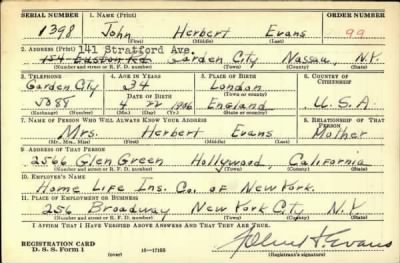 SERIAL NUMBER 1. NAME (Print) ORDER NUMBER
1398 John Herbert Evans 99
(First) (Middle) (Last)
2. ADDRESS (Print) 141 Stratford Ave.
154 Euston Rd. Garden City Nassau, N.Y.
(Number and street or R. F. D. number) (Town) (County) (State)
3. TELEPHONE 4. AGE IN YEARS 5. PLACE OF BIRTH 6. COUNTRY OF CITIZENSHIP
Garden City 34 London
DATE OF BIRTH (Town or county)
5088 4 22 1906 England U.S.A.
(Exchange) (Number) (Mo.) (Day) (Yr.) (State or country)
7. NAME OF PERSON WHO WILL ALWAYS KNOW YOUR ADDRESS 8. RELATIONSHIP OF THAT PERSON
Mrs. Herbert Evans Mother
(Mr., Mrs., Miss) (First) (Middle) (Last)
9. ADDRESS OF THAT PERSON
2566 Glen Green Hollywood, California
(Number and street or R. F. D. number) (Town) (County) (State)
10. EMPLOYER'S NAME
Home Life Ins. Co. of New York.
11. PLACE OF EMPLOYMENT OR BUSINESS
256 Broadway New York City N.Y.
(Number and street or R. F. D. number) (Town) (County) (State)
I AFFIRM THAT I HAVE VERIFIED ABOVE ANSWERS AND THAT THEY ARE TRUE.
REGISTRATION CARD
D. S. S. Form 1 16—17105 John H. Evans
(Registrant's signature)